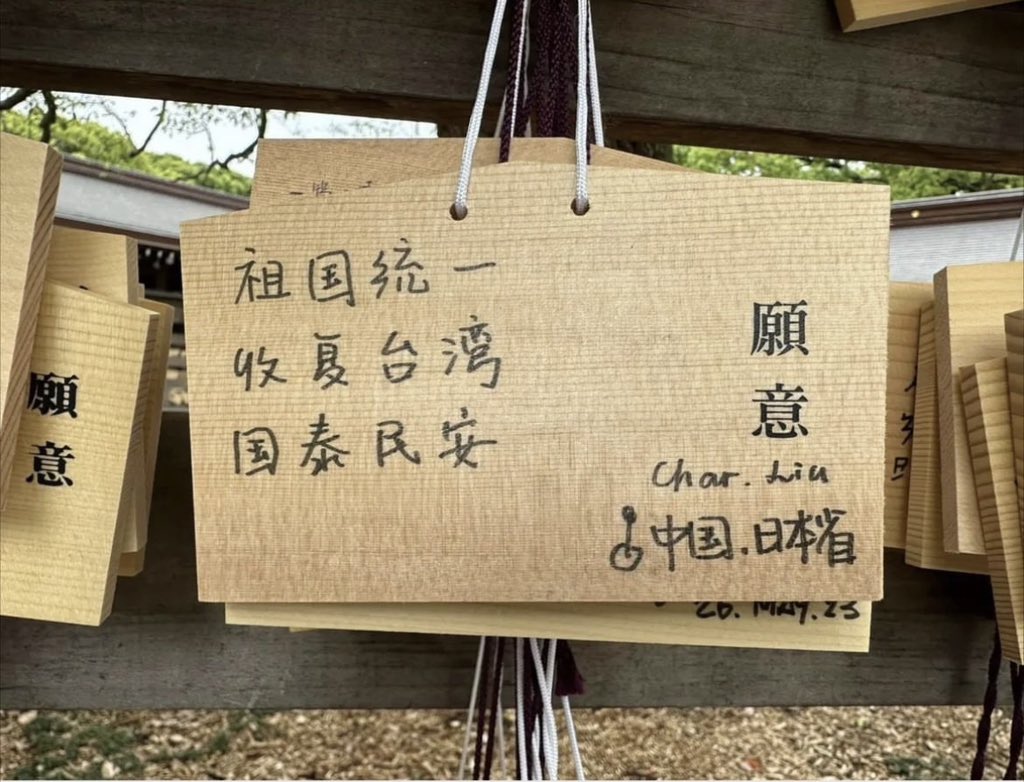 祖国统一
收复台湾
国泰民安
願意
Char. Liu
中国.日本省
26. MAY. 23
願意